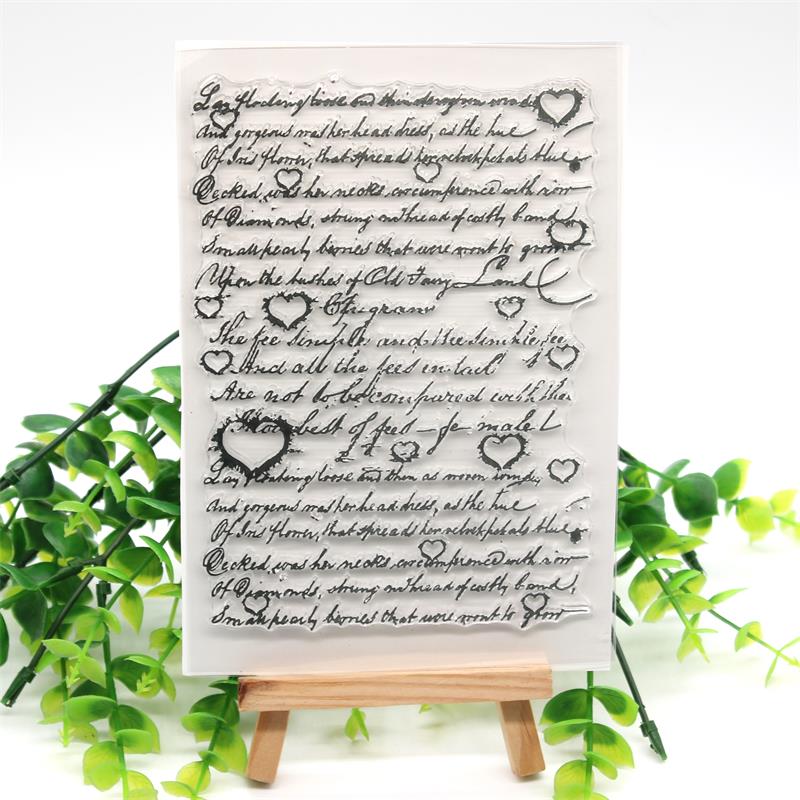 Lay floating loose and thin as woven wind,
And gorgeous was her head dress, as the hue
Of Iris flower, that spreads her velvet petals blue.
Decked was her necks circumference with row
Of Diamonds, strung on thread of costly band,
Small pearly berries that were wont to grow
Upon the bushes of Old Fairy Land
Epigram
The fee simple and the simple fee
And all the fees in tail
Are not to be compared with thee
Thou best of fees - fe male!
Lay floating loose and thin as woven wind,
And gorgeous was her head dress, as the hue
Of Iris flower, that spreads her velvet petals blue.
Decked was her necks circumference with row
Of Diamonds, strung on thread of costly band,
Small pearly berries that were wont to grow